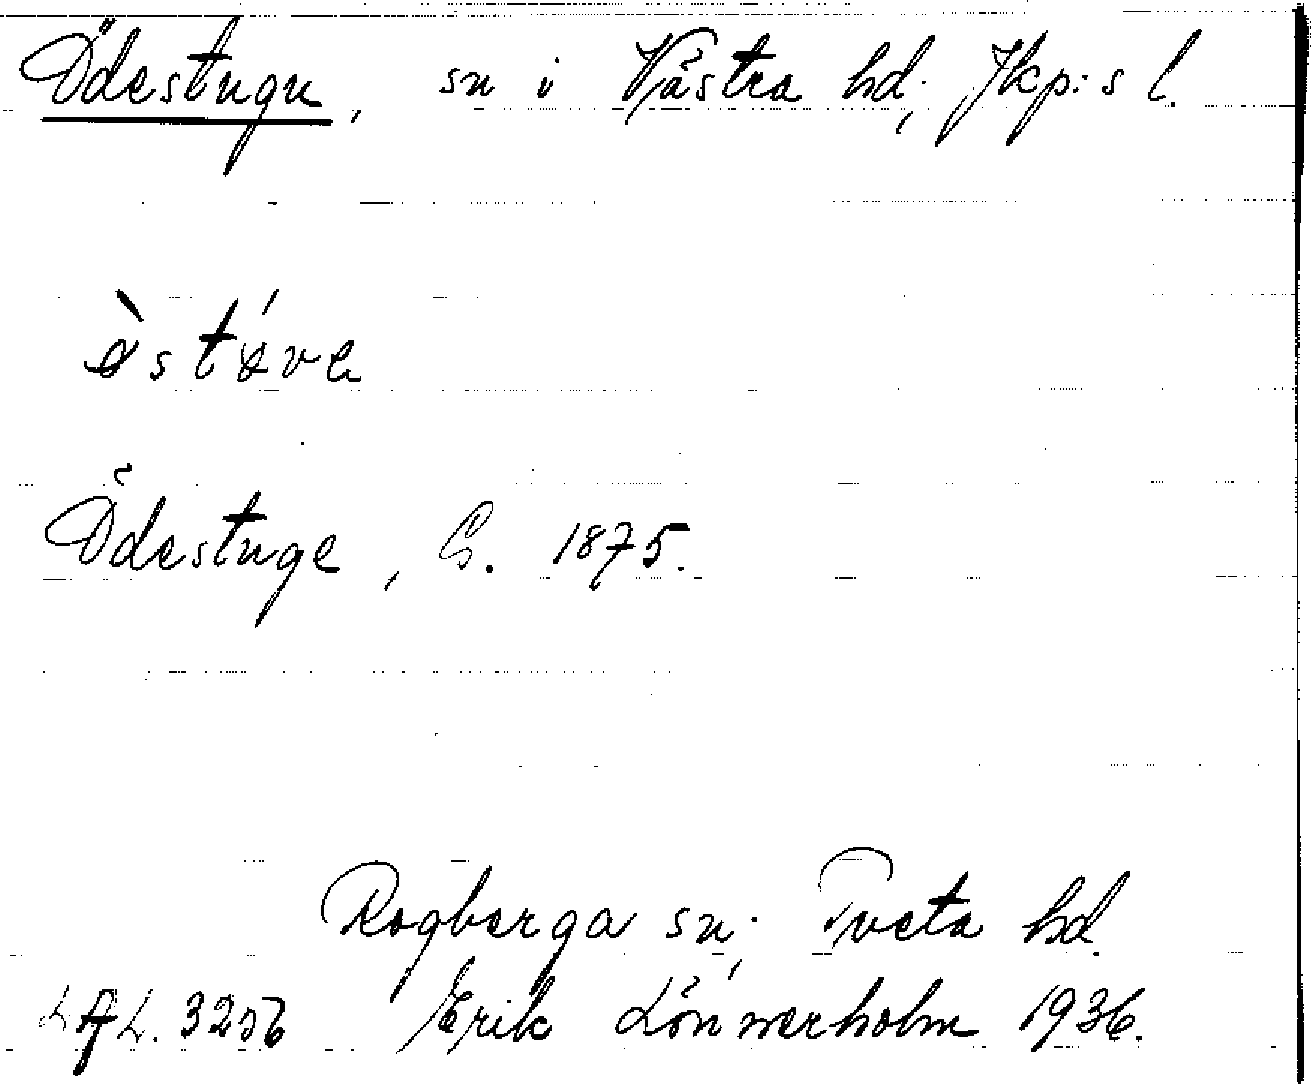 Ödestugu, sn i Västra hd; Jkp:s l.
ø̀støve
Ödestuge, G. 1875.
Rogberga sn; Tveta hd.
LAL. 3256 Erik Lönnerholm 1936.